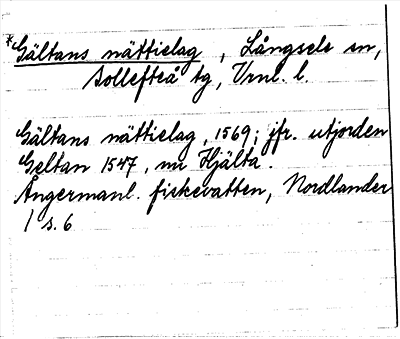 *Gältans nättielag, Långsele sn,
Sollefteå tg, Vrnl. l.
Gältans nättielag, 1569; jfr. utjorden
Geltan 1547, nu Hjälta.
Ångermanl. fiskevatten, Nordlander
1 s. 6